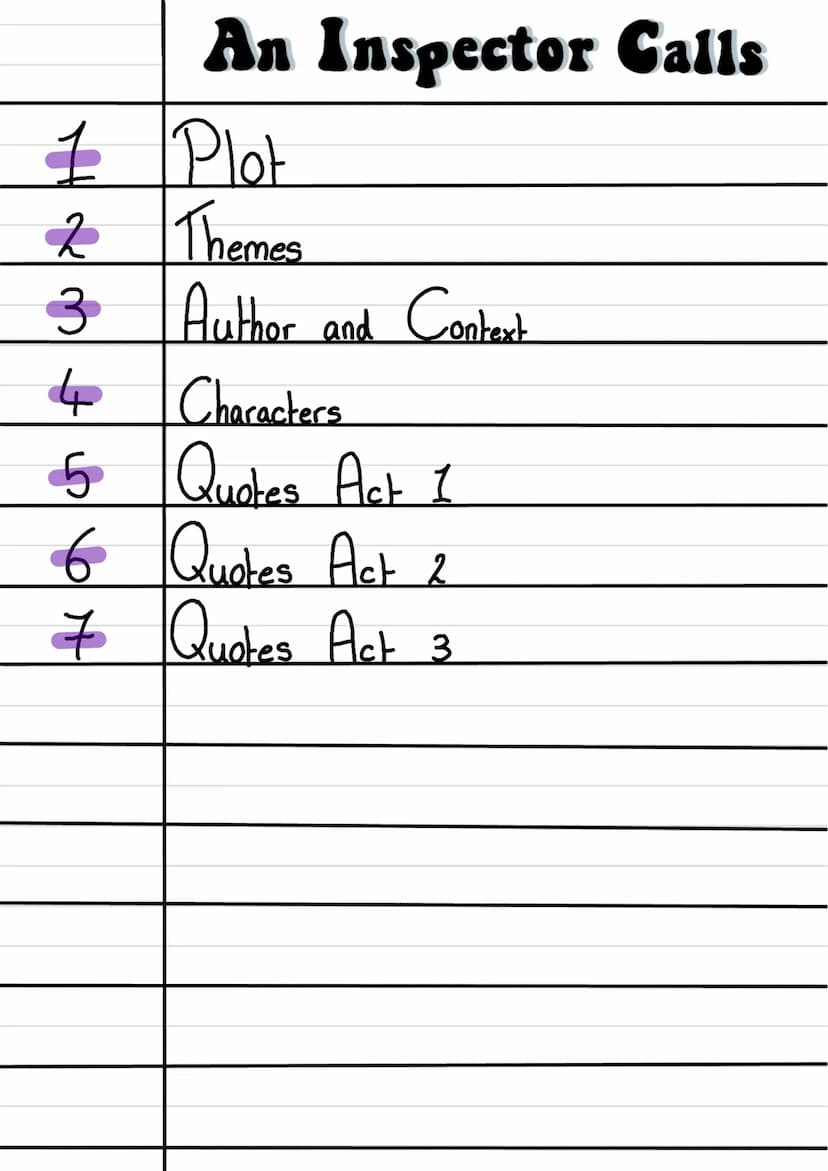 An Inspector Calls
1 Plot
2 Themes
3 Author and Context
4 Characters
5 Quotes Act 1
6 Quotes Act 2
7 Quotes Act 3